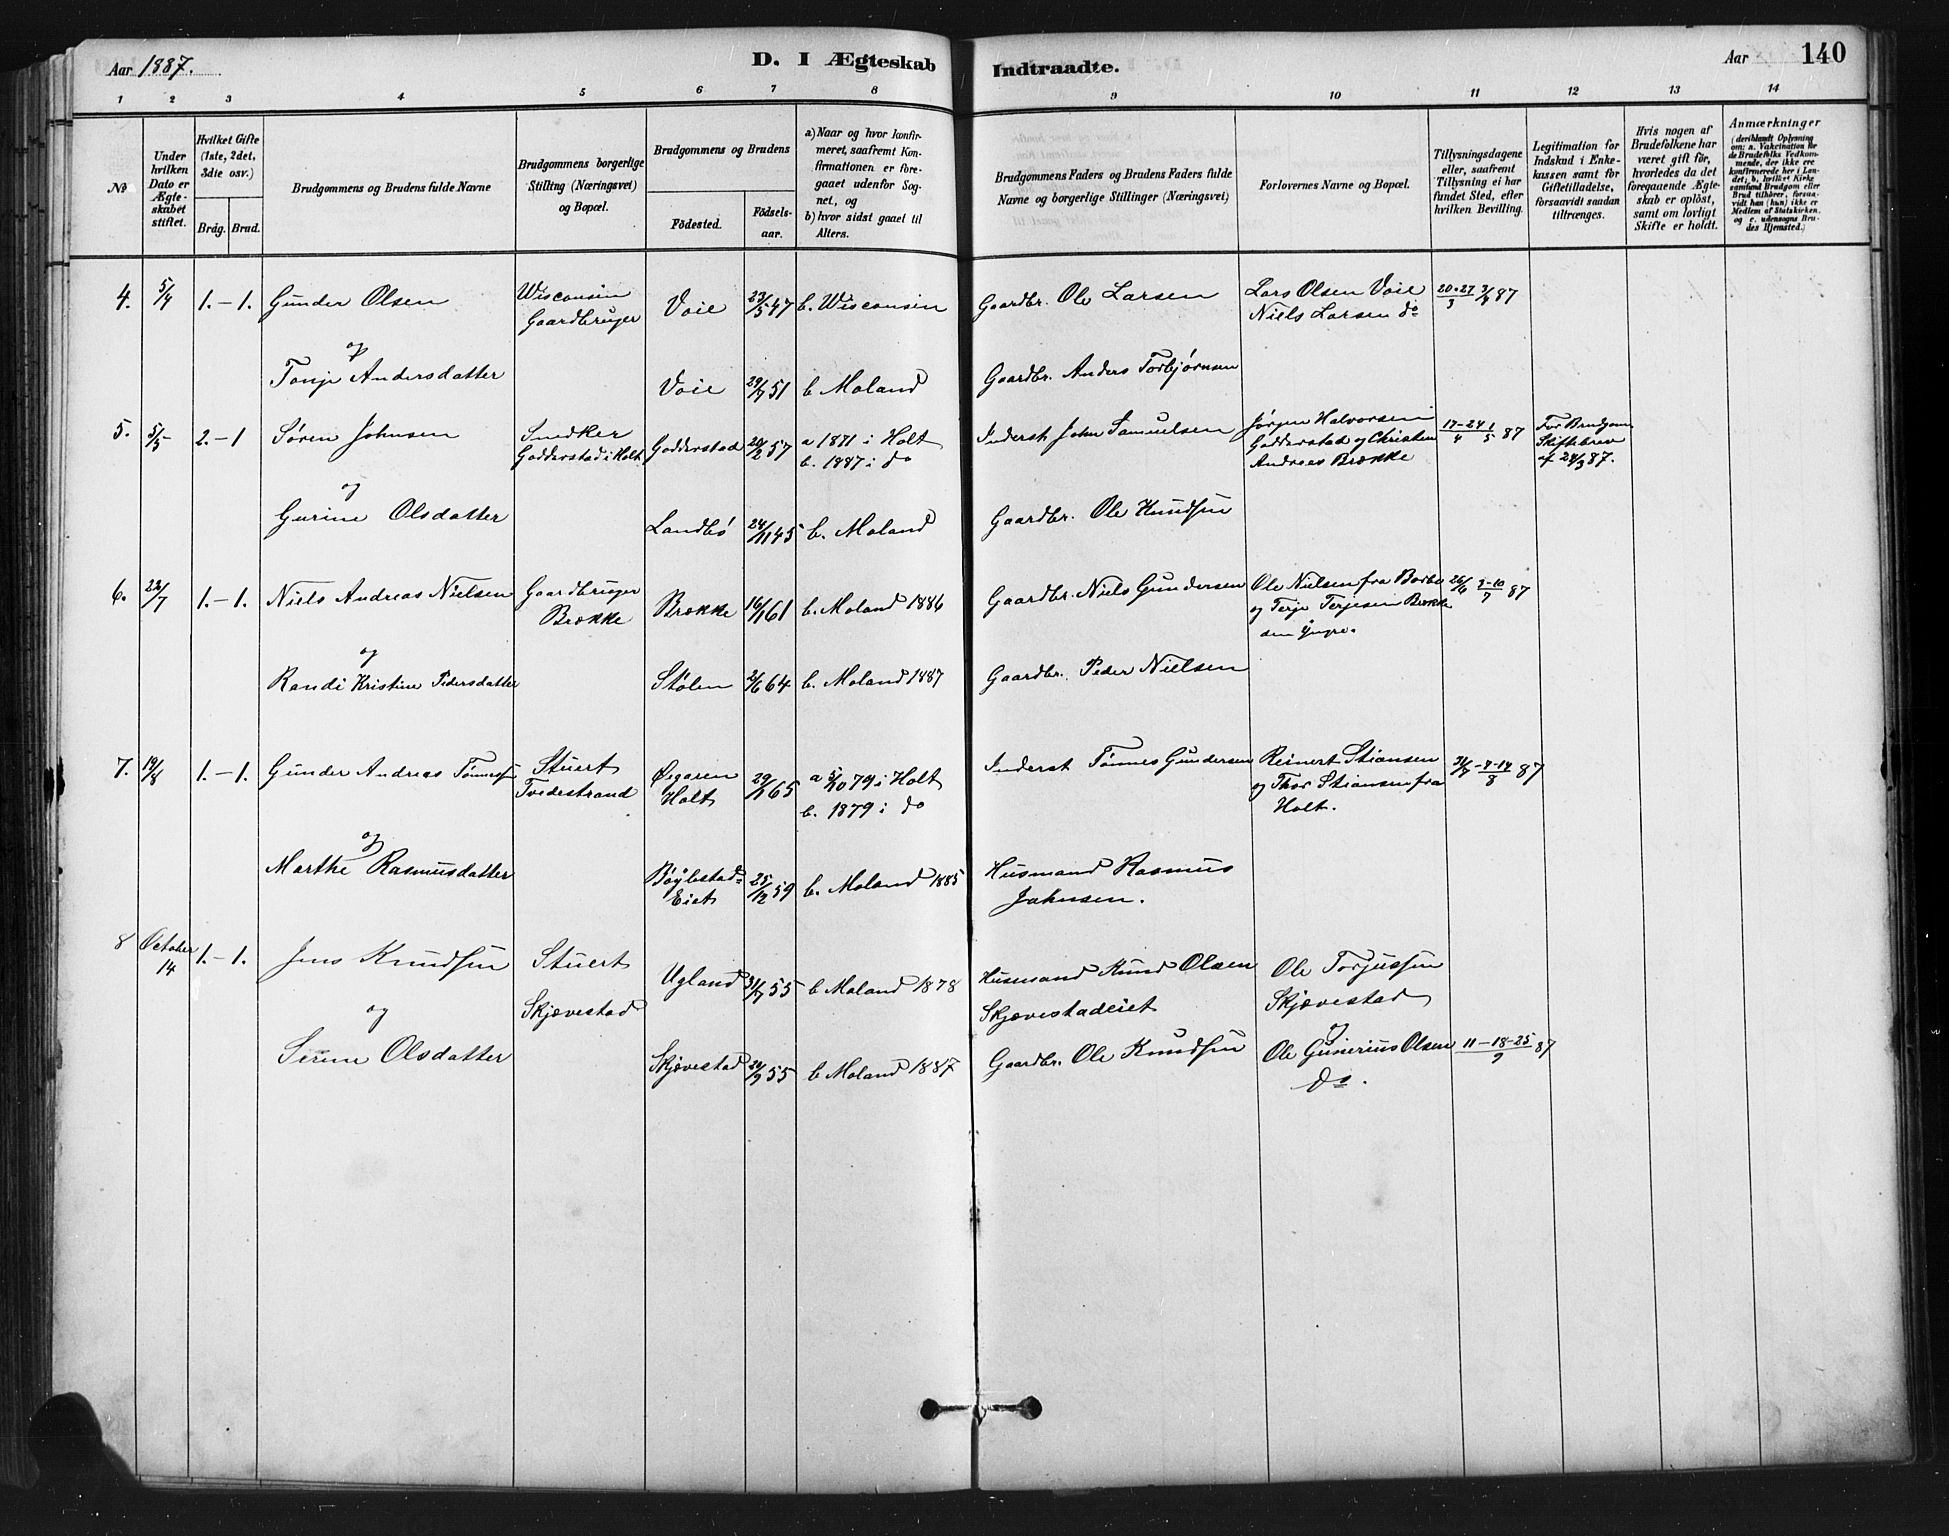 Aar 1887.
D. I Ægteskab Indtraadte.
Aar 140
1 2 3 4 5 6 7 8 9 10 11 12 13 14
No
Under hvilken Dato er Ægteskabet stiftet.
Hvilket Gifte (1ste, 2det, 3die osv.)
Brdg. Brud.
Brudgommens og Brudens fulde Navne
Brudgommens borgerlige Stilling (Næringsvei) og Bopæl.
Brudgommens og Brudens
Födested.
Födselsaar.
a) Naar og hvor konfirmeret, saafremt Konfirmationen er foregaaet udenfor Sognet, og
b) hvor sidst gaaet til Alters.
Brudgommens Faders og Brudens Faders fulde Navne og borgerlige Stillinger (Næringsvei)
Forlovernes Navne og Bopæl.
Tillysningsdagene eller, saafremt Tillysning ei har fundet Sted, efter hvilken Bevilling.
Legitimation for Indskud i Enkekassen samt for Giftetilladelse, forsaavidt saadan tiltrænges.
Hvis nogen af Brudefolkene har været gift för, hvorledes da det foregaaende Ægteskab er oplöst, samt om lovligt Skifte er holdt.
Anmærkninger
(deriblandt Oplysning om: a. Vakcination for de Brudefolks Vedkommende, der ikke ere konfirmerede her i Landet; b. hvilket Kirkesamfund Brudgom eller Brud tilhörer, forsaavidt han (hun) ikke er Medlem af Statskirken, og c. udensogns Brudes Hjemsted.)
4. 5/4 1. - 1. Gunder Olsen Wisconsin Gaardbruger Voie 23/5 47 b. Wisconsin Gaardbr. Ole Larsen Lars Olsen Voie Niels Larsen do 20-27/3 3/4 87
og
Tonje Andersdatter Voie 29/7 51 b Moland Gaardbr. Anders Torbjørnsen
5. 5/5 2. - 1 Søren Johnsen Snedker Godderstad i Holt Godderstad 20/2 57 a 1871 i Holt b. 1887 i do Inderst John Samuelsen Jørgen Halvorsen Godderstad og Christen Andreas Brække 17-24/4 1/5 87 For Brudgom Skiftebrev af 24/3 87.
og
Gurine Olsdatter Landbø 24/11 45 b. Moland Gaardbr. Ole Knudsen
6. 22/7 1. - 1. Niels Andreas Nielsen Gaardbruger Brække Brække 16/1 61 b. Moland 1886 Gaardbr. Niels Gundersen Ole Nielsen fra Borbo og Terje Terjesen Brække den Yngre. 26/6 3-10/7 87
og
Randi Kristine Pedersdatter Stølen 2/6 64 b. Moland 1887 Gaardbr. Peder Nielsen
7. 19/8 1. - 1. Gunder Andreas Tønnessen Stuert Tvedestrand Øigaren Holt 29/1 65 a 5/10 79 i Holt b. 1879 i do Inderst Tønnes Gundersen Reinert Stiansen og Thor Stiansen fra Holt. 31/7 - 7-14/8 87
og
Marthe Rasmusdatter Bøylestad-Eiet 25/12 59 b. Moland 1885 Husmand Rasmus Johnsen.
8 October 14 1. - 1. Jens Knudsen Stuert Skjævestad Ugland 31/7 55 b Moland 1878 Husmand Knud Olsen Skjævestadeiet Ole Torjussen Skjævestad
og
Serine Olsdatter Skjævestad 24/9 55 b Moland 1887 Gaardbr. Ole Knudsen og Ole Gunerius Olsen do. 11-18-25/9 87